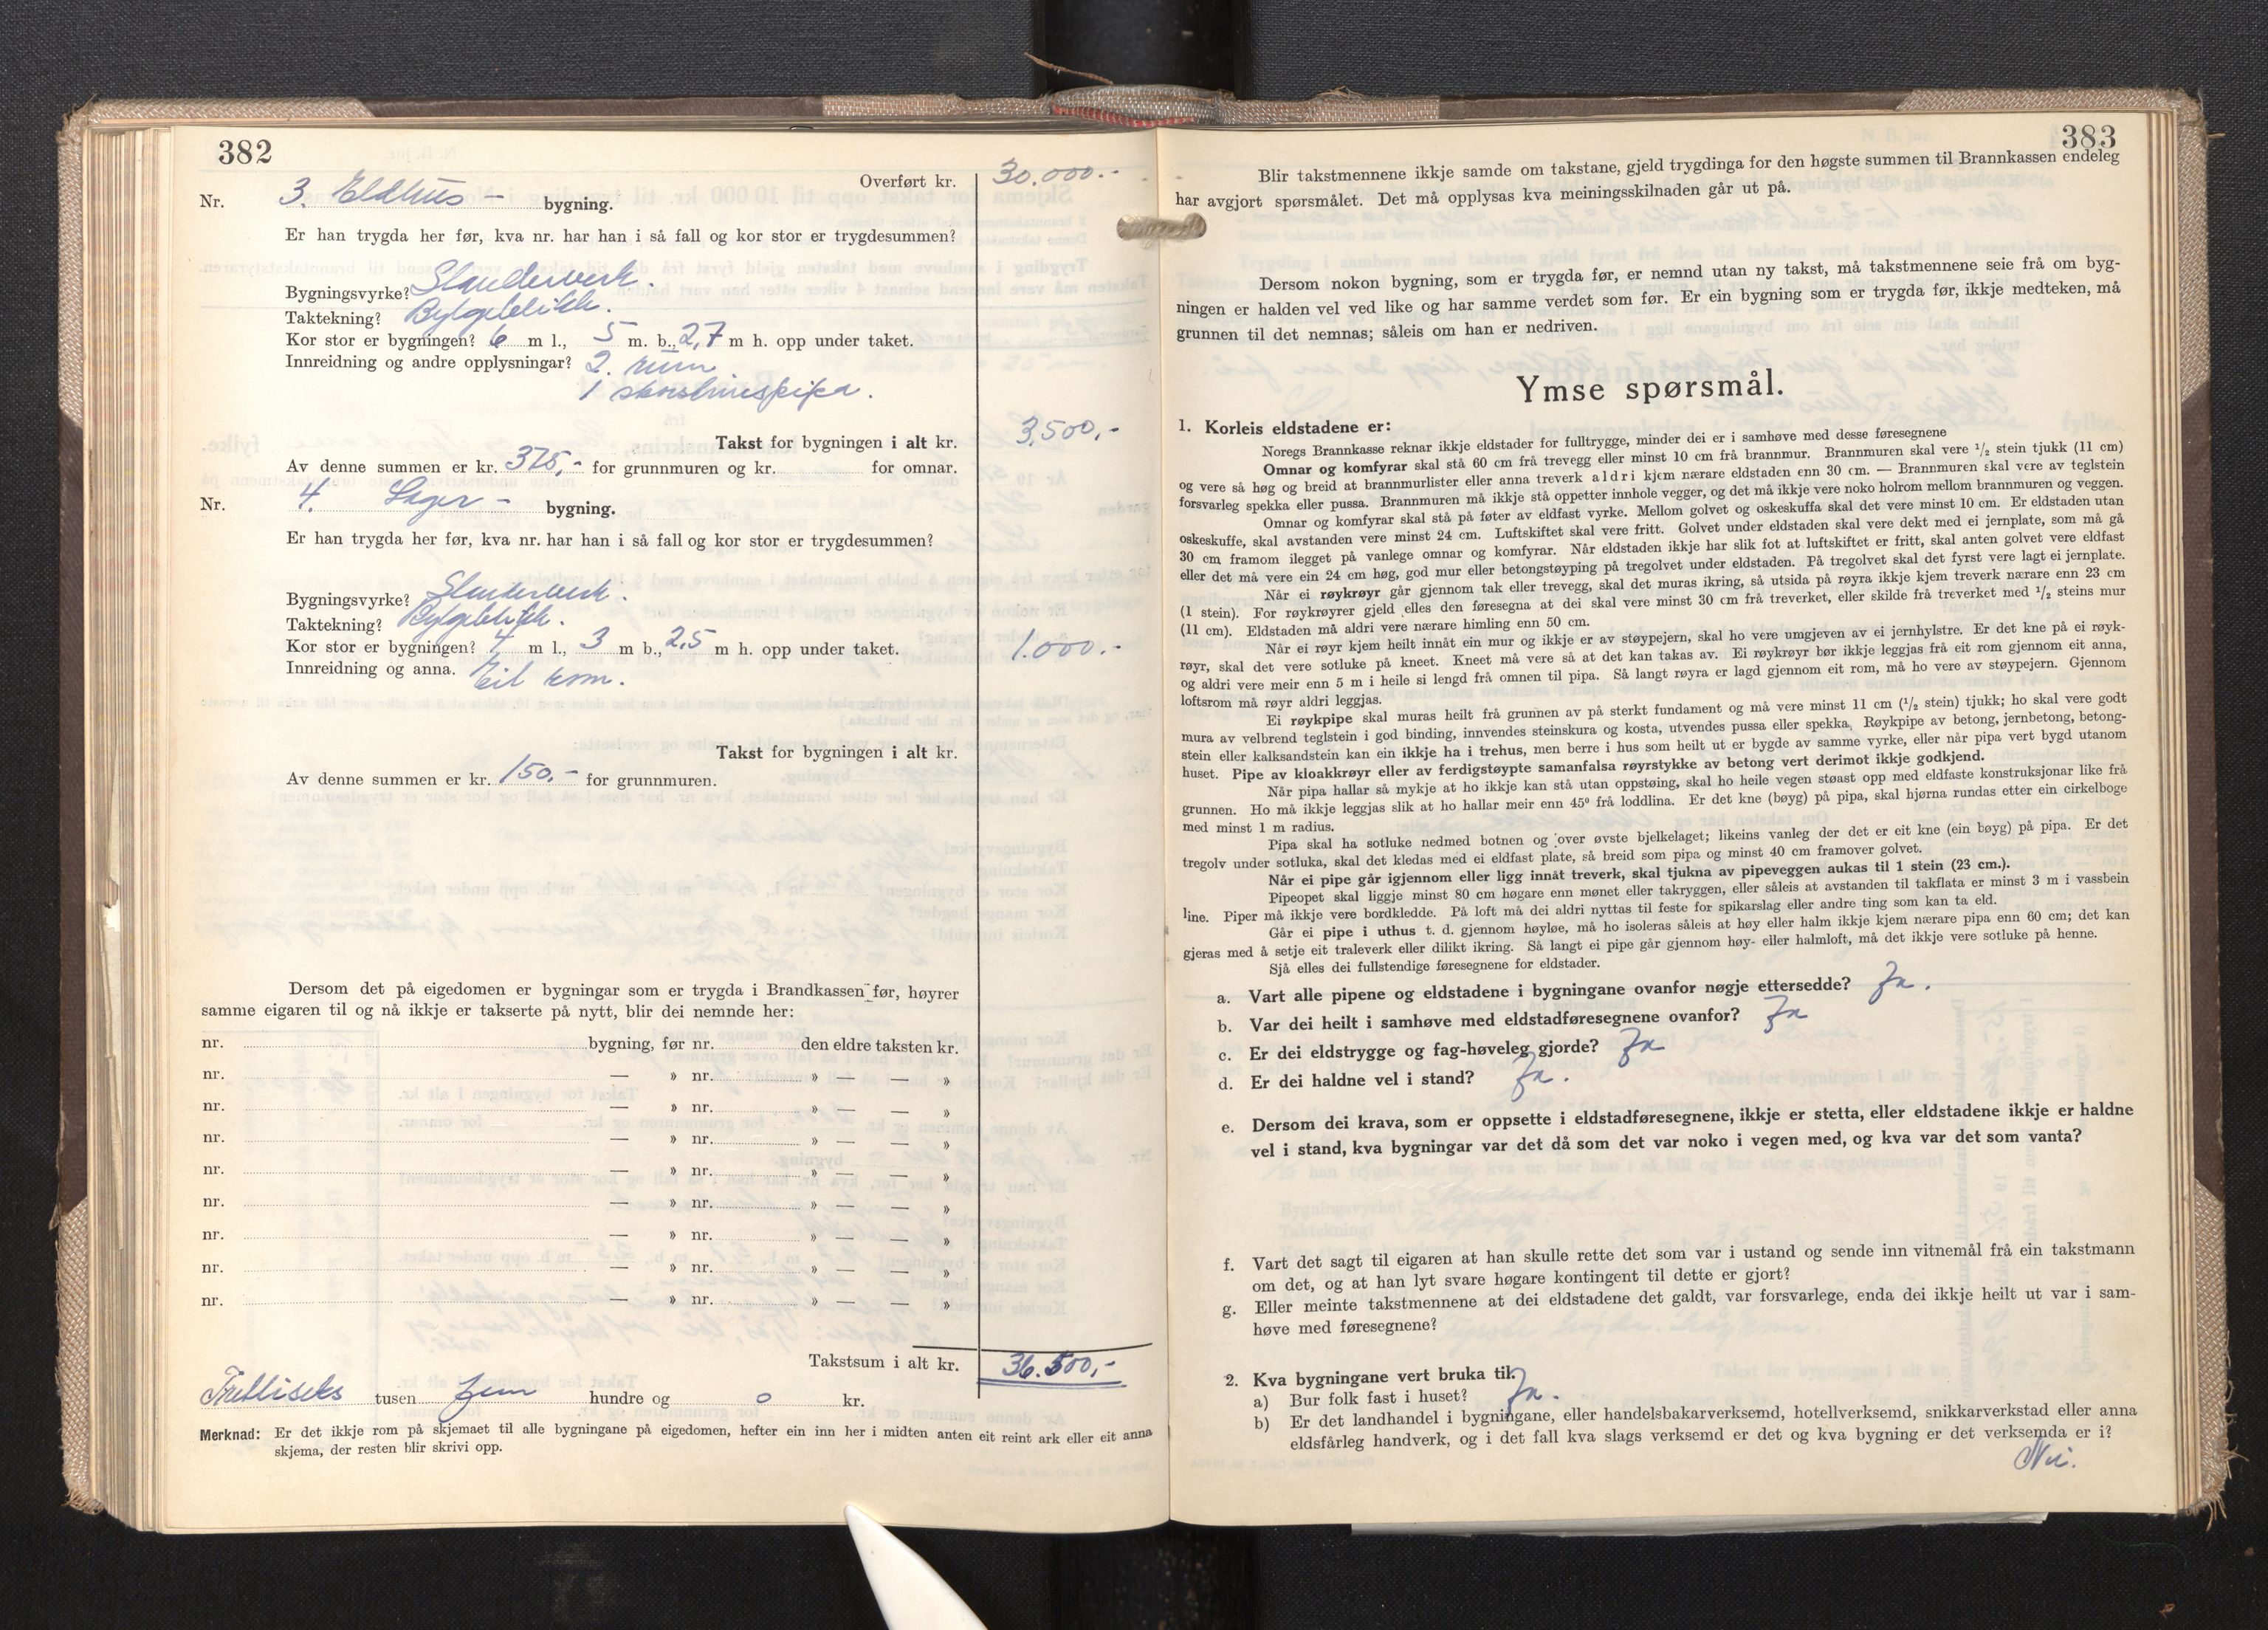 382
Overført kr. 30.000.-
Nr. 3. Eldhus - bygning.
Er han trygda her før, kva nr. har han i så fall og kor stor er trygdesummen?
Bygningsvyrke? Standerverk.
Taktekning? Bylgjeblikk.
Kor stor er bygningen? 6 m l., 5 m. b., 2,7 m h. opp under taket.
Innreidning og andre opplysningar? 2. rum
1 skorsteinspipa.
Takst for bygningen i alt kr. 3.500,-
Av denne summen er kr. 375,- for grunnmuren og kr. for omnar.
Nr. 4. Lager - bygning.
Er han trygda her før, kva nr. har han i så fall og kor stor er trygdesummen?
Bygningsvyrke? Standerverk.
Taktekning? Bylgjeblikk.
Kor stor er bygningen? 4 m l., 3 m b., 2,5 m h. opp under taket. 1.000.-
Innreidning og anna. Eit rom.
Takst for bygningen i alt kr.
Av denne summen er kr. 150,- for grunnmuren.
Dersom det på eigedomen er bygningar som er trygda i Brandkassen før, høyrer
samme eigaren til og nå ikkje er takserte på nytt, blir dei nemnde her:
nr. bygning, før nr. den eldre taksten kr.
nr. — » nr. » — — »
nr. — » nr. » — — »
nr. — » nr. » — — »
nr. — » nr. » — — »
nr. — » nr. » — — »
nr. — » nr. » — — »
nr. — » nr. » — — »
nr. — » nr. » — — »
Takstsum i alt kr. 36.500,-
Trettiseks tusen fem hundre og 0 kr.
Merknad: Er det ikkje rom på skjemaet til alle bygningane på eigedomen, hefter ein inn her i midten anten eit reint ark eller eit anna
skjema, der resten blir skrivi opp.
383
Blir takstmennene ikkje samde om takstane, gjeld trygdinga for den høgste summen til Brannkassen endeleg
har avgjort spørsmålet. Det må opplysas kva meiningsskilnaden går ut på.
Dersom nokon bygning, som er trygda før, er nemnd utan ny takst, må takstmennene seie frå om byg-
ningen er halden vel ved like og har samme verdet som før. Er ein bygning som er trygda før, ikkje medteken, må
grunnen til det nemnas; såleis om han er nedriven.
Ymse spørsmål.
1. Korleis eldstadene er:
Noregs Brannkasse reknar ikkje eldstader for fulltrygge, minder dei er i samhøve med desse føresegnene
Omnar og komfyrar skal stå 60 cm frå trevegg eller minst 10 cm frå brannmur. Brannmuren skal vere 1/2 stein tjukk (11 cm)
og vere så høg og breid at brannmurlister eller anna treverk aldri kjem nærare eldstaden enn 30 cm. — Brannmuren skal vere av teglstein
forsvarleg spekka eller pussa. Brannmuren må ikkje stå oppetter innhole vegger, og det må ikkje vere noko holrom mellom brannmuren og veggen.
Omnar og komfyrar skal stå på føter av eldfast vyrke. Mellom golvet og oskeskuffa skal det vere minst 10 cm. Er eldstaden utan
oskeskuffe, skal avstanden vere minst 24 cm. Luftskiftet skal vere fritt. Golvet under eldstaden skal vere dekt med ei jernplate, som må gå
30 cm framom ilegget på vanlege omnar og komfyrar. Når eldstaden ikkje har slik fot at luftskiftet er fritt, skal anten golvet vere eldfast
eller det må vere ein 24 cm høg, god mur eller betongstøyping på tregolvet under eldstaden. På tregolvet skal det fyrst vere lagt ei jernplate.
Når ei røykrøyr går gjennom tak eller trevegg, skal det muras ikring, så utsida på røyra ikkje kjem treverk nærare enn 23 cm
(1 stein). For røykrøyrer gjeld elles den føresegna at dei skal vere minst 30 cm frå treverket, eller skilde frå treverket med 1/2 steins mur
(11 cm). Eldstaden må aldri vere nærare himling enn 50 cm.
Når ei røyr kjem heilt innåt ein mur og ikkje er av støypejern, skal ho vere umgjeven av ei jernhylstre. Er det kne på ei røyk-
røyr, skal det vere sotluke på kneet. Kneet må vere så at det kan takas av. Ei røykrøyr bør ikkje leggjas frå eit rom gjennom eit anna,
og aldri vere meir enn 5 m i heile si lengd frå omnen til pipa. Så langt røyra er lagd gjennom eit rom, må ho vere av støypejern. Gjennom
loftsrom må røyr aldri leggjas.
Ei røykpipe skal muras heilt frå grunnen av på sterkt fundament og må vere minst 11 cm (1/2 stein) tjukk; ho skal vere godt
mura av velbrend teglstein i god binding, innvendes steinskura og kosta, utvendes pussa eller spekka. Røykpipe av betong, jernbetong, betong-
stein eller kalksandstein kan ein ikkje ha i trehus, men berre i hus som heilt ut er bygde av samme vyrke, eller når pipa vert bygd utanom
huset. Pipe av kloakkrøyr eller av ferdigstøypte samanfalsa røyrstykke av betong vert derimot ikkje godkjend.
Når pipa hallar så mykje at ho ikkje kan stå utan oppstøing, skal ho heile vegen støast opp med eldfaste konstruksjonar like frå
grunnen. Ho må ikkje leggjas slik at ho hallar meir enn 45° frå loddlina. Er det kne (bøyg) på pipa, skal hjørna rundas etter ein cirkelboge
med minst 1 m radius.
Pipa skal ha sotluke nedmed botnen og over øvste bjelkelaget; likeins vanleg der det er eit kne (ein bøyg) på pipa. Er det
tregolv under sotluka, skal det kledas med ei eldfast plate, så breid som pipa og minst 40 cm framover golvet.
Når ei pipe går igjennom eller ligg innåt treverk, skal tjukna av pipeveggen aukas til 1 stein (23 cm.).
Pipeopet skal liggje minst 80 cm høgare enn mønet eller takryggen, eller såleis at avstanden til takflata er minst 3 m i vassbein
line. Piper må ikkje vere bordkledde. På loft må dei aldri nyttas til feste for spikarslag eller andre ting som kan ta eld.
Går ei pipe i uthus t. d. gjennom høyløe, må ho isoleras såleis at høy eller halm ikkje kjem nærare pipa enn 60 cm; det kan
gjeras med å setje eit traleverk eller dilikt ikring. Så langt ei pipe går gjennom høy- eller halmloft, må det ikkje vere sotluke på henne.
Sjå elles dei fullstendige føresegnene for eldstader.
a. Vart alle pipene og eldstadene i bygningane ovanfor nøgje ettersedde? Ja.
b. Var dei heilt i samhøve med eldstadføresegnene ovanfor? Ja
c. Er dei eldstrygge og fag-høveleg gjorde? Ja
d. Er dei haldne vel i stand? Ja.
e. Dersom dei krava, som er oppsette i eldstadføresegnene, ikkje er stetta, eller eldstadene ikkje er haldne
vel i stand, kva bygningar var det då som det var noko i vegen med, og kva var det som vanta?
f. Vart det sagt til eigaren at han skulle rette det som var i ustand og sende inn vitnemål frå ein takstmann
om det, og at han lyt svare høgare kontingent til dette er gjort?
g. Eller meinte takstmennene at dei eldstadene det galdt, var forsvarlege, enda dei ikkje heilt ut var i sam-
høve med føresegnene?
2. Kva bygningane vert bruka til.
a) Bur folk fast i huset? Ja.
b) Er det landhandel i bygningane, eller handelsbakarverksemd, hotellverksemd, snikkarverkstad eller anna
eldsfårleg handverk, og i det fall kva slags verksemd er det og kva bygning er det verksemda er i?
Nei.